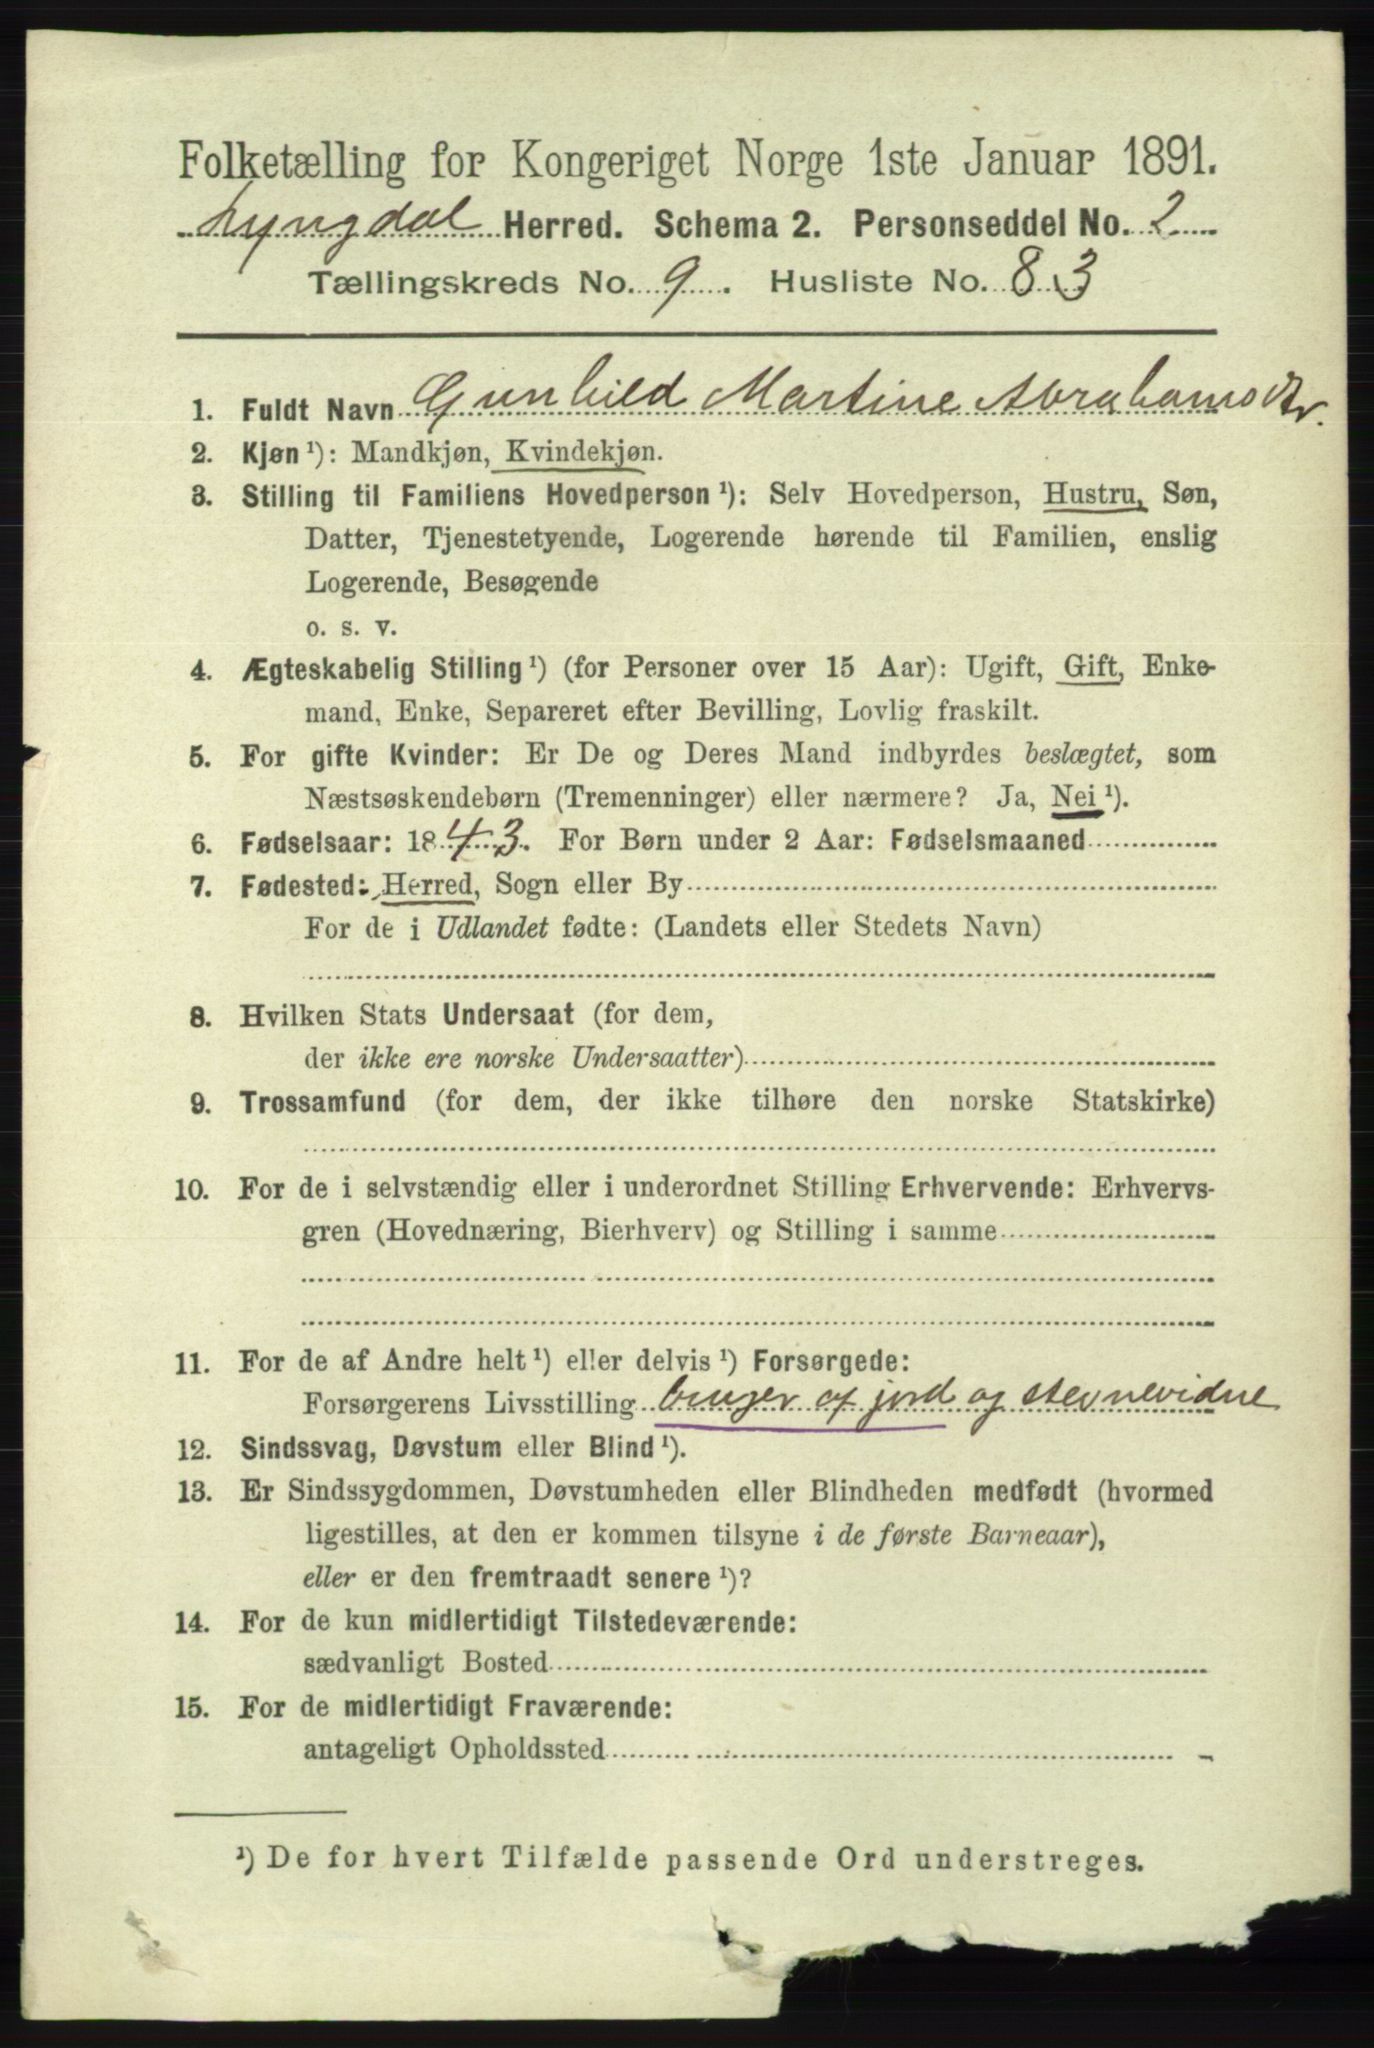 Folketælling for Kongeriget Norge 1ste Januar 1891.
Lyngdal Herred. Schema 2. Personseddel No. 2
Tællingskreds No. 9. Husliste No. 83
1. Fuldt Navn Gunhild Martine Abrahamsdtr.
2. Kjøn¹): Mandkjøn, Kvindekjøn.
3. Stilling til Familiens Hovedperson¹): Selv Hovedperson, Hustru, Søn,
Datter, Tjenestetyende, Logerende hørende til Familien, enslig
Logerende, Besøgende
o. s. v.
4. Ægteskabelig Stilling¹) (for Personer over 15 Aar): Ugift, Gift, Enke-
mand, Enke, Separeret efter Bevilling, Lovlig fraskilt.
5. For gifte Kvinder: Er De og Deres Mand indbyrdes beslægtet, som
Næstsøskendebørn (Tremenninger) eller nærmere? Ja, Nei¹).
6. Fødselsaar: 1843. For Børn under 2 Aar: Fødselsmaaned
7. Fødested: Herred, Sogn eller By
For de i Udlandet fødte: (Landets eller Stedets Navn)
8. Hvilken Stats Undersaat (for dem,
der ikke ere norske Undersaatter)
9. Trossamfund (for dem, der ikke tilhøre den norske Statskirke)
10. For de i selvstændig eller i underordnet Stilling Erhvervende: Erhvervs-
gren (Hovednæring, Bierhverv) og Stilling i samme
11. For de af Andre helt¹) eller delvis¹) Forsørgede:
Forsørgerens Livsstilling bruger af jord og stevnevidne
12. Sindssvag, Døvstum eller Blind¹).
13. Er Sindssygdommen, Døvstumheden eller Blindheden medfødt (hvormed
ligestilles, at den er kommen tilsyne i de første Barneaar),
eller er den fremtraadt senere¹)?
14. For de kun midlertidigt Tilstedeværende:
sædvanligt Bosted
15. For de midlertidigt Fraværende:
antageligt Opholdssted
¹) De for hvert Tilfælde passende Ord understreges.